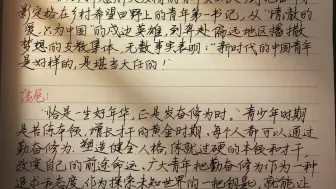 影定格在乡村希望田野上的青年第一书记，从“清澈的
爱，只为中国”的戍边英雄，到奔赴偏远地区播撒
梦想的支教集体，无数事实表明：“新时代的中国青年
是好样的，是堪当大任的！”
结尾：
“恰是一生好年华，正是发奋修为时。”青少年时期
是苦练本领，增长才干的黄金时期，每个人都可以通过
勤奋修为，塑造健全人格，练就过硬的本领和才干，
改变自己的前途命运。广大青年把勤奋修为作为一种
追求和态度，作为探索未知世界的一把钥匙，就能让